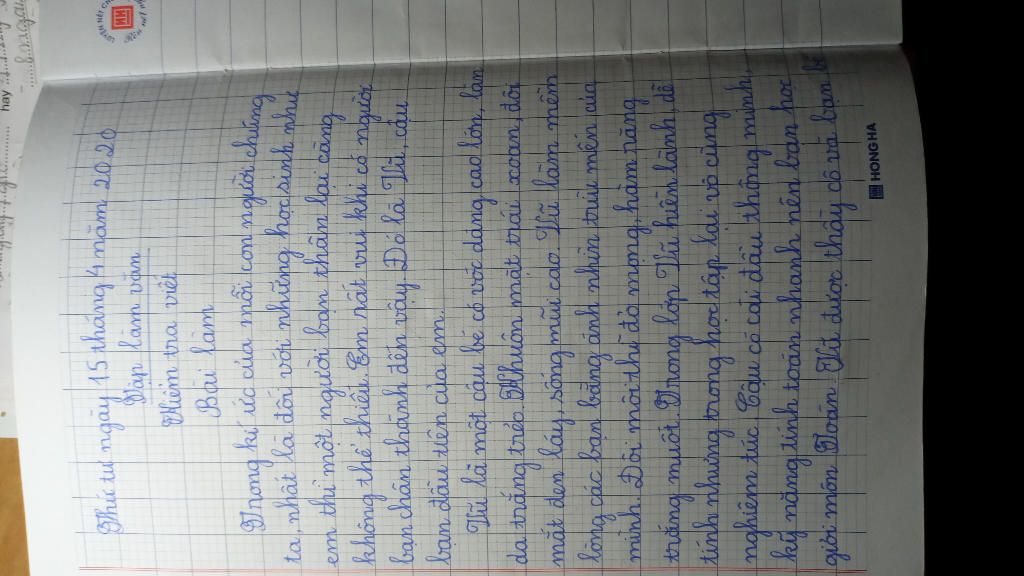 Thứ tư ngày 15 tháng 4 năm 2020
Tập làm văn
Kiểm tra viết
Bài làm
Trong kí ức của mỗi con người chúng
ta, nhất là đối với những học sinh như
em thì một người bạn thân lại càng
không thể thiếu. Em rất vui khi có người
bạn chân thành đến vậy. Đó là Vũ, cậu
bạn đầu tiên của em.
Vũ là một cậu bé có vóc dáng cao lớn, làn
da trắng trẻo. Khuôn mặt trái xoan, đôi
mắt đen láy, sống mũi cao. Vũ làm mềm
lòng các bạn bằng ánh nhìn trìu mến của
mình. Đôi môi thì đỏ mọng, hàm răng
trắng muốt. Trong lớp Vũ hiền lành, dễ
tính nhưng trong học tập lại vô cùng
nghiêm túc. Cậu có cái đầu thông minh,
kỹ năng tính toán nhanh nên bạn học
giỏi môn Toán. Vũ được thầy cô và bạn bè
HONG HA
LUYỆN NÉT CH
HH
hay